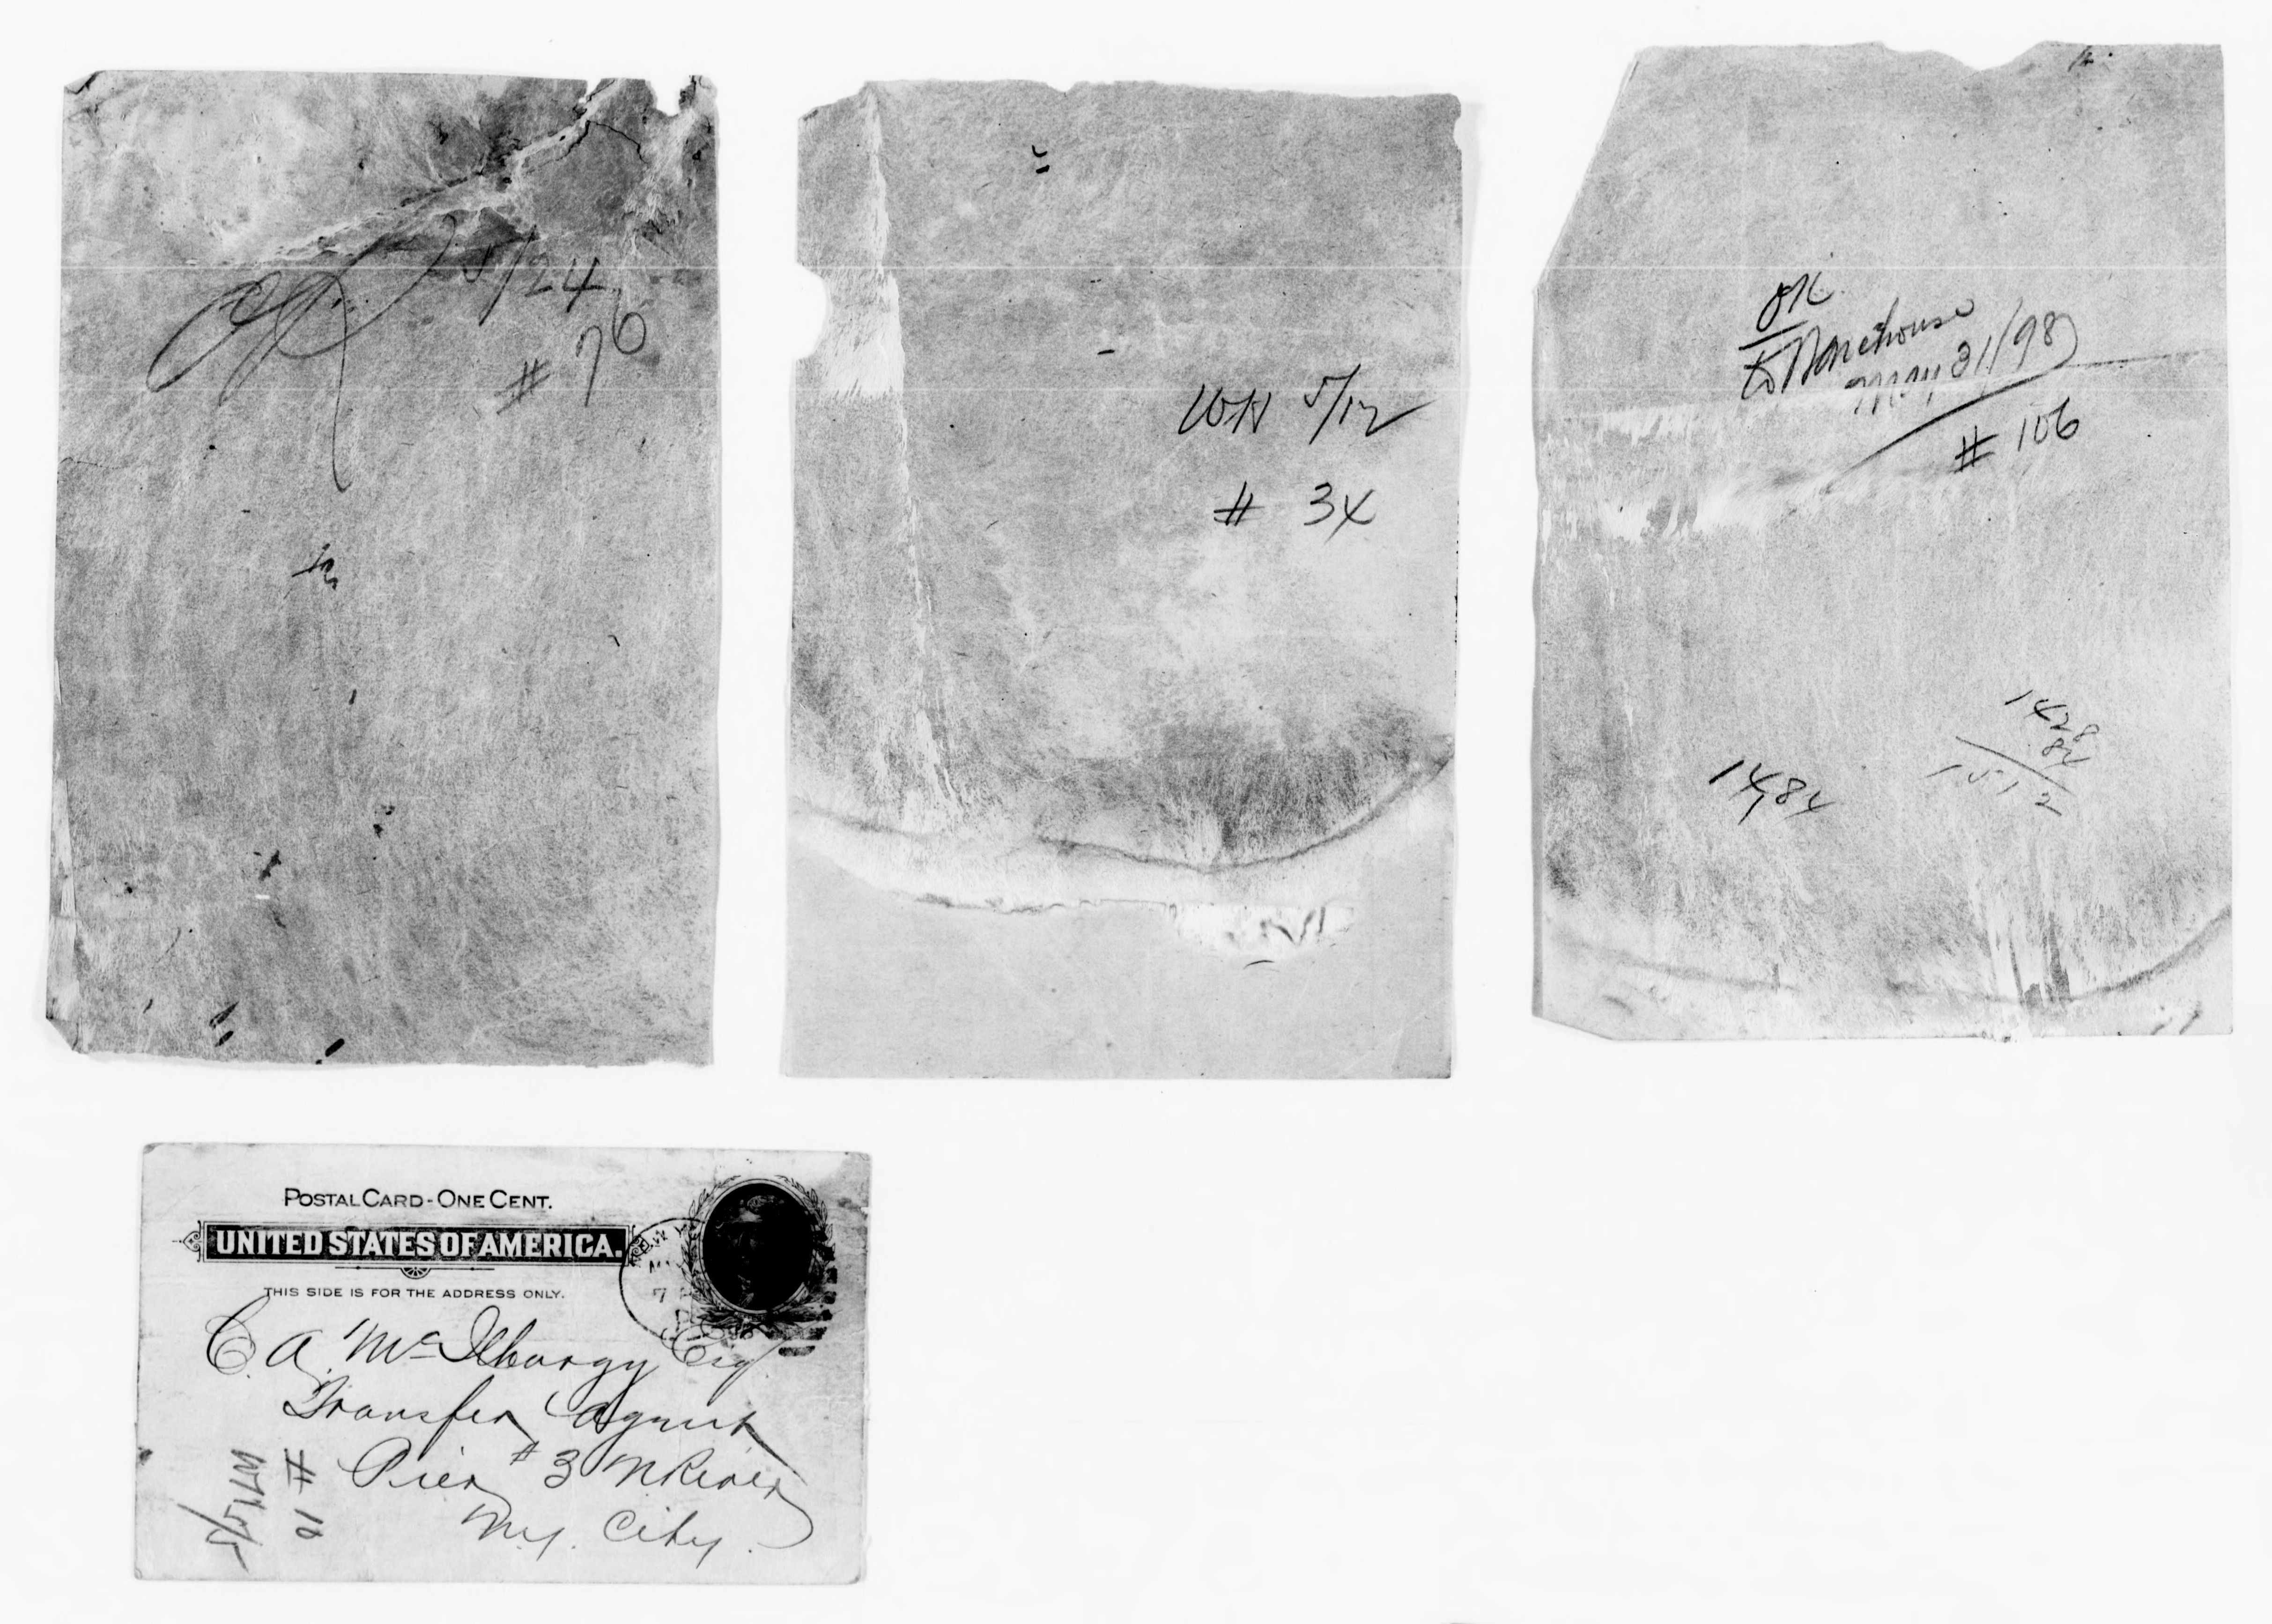 5/24
# 76
WH 5/12
# 34
OK
to Warehouse
May 31/98
# 106
1484
1428
84
1512
POSTAL CARD - ONE CENT.
UNITED STATES OF AMERICA.
THIS SIDE IS FOR THE ADDRESS ONLY.
C. A. McIlhargy Esq
Transfer Agent
Pier # 3 N River
N.Y. City.
# 10